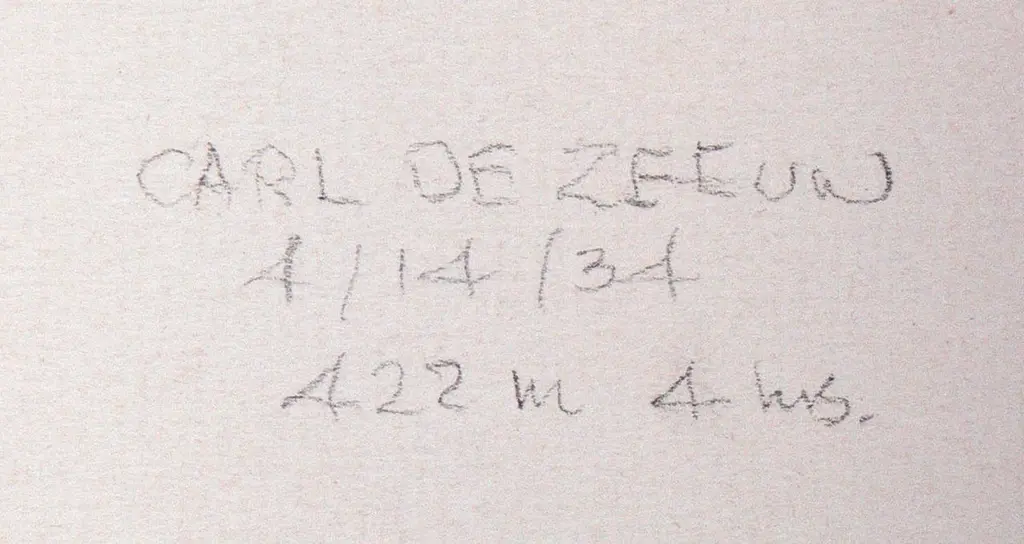 CARL DE ZEEUW
4/14/34
422 m 4 hrs.